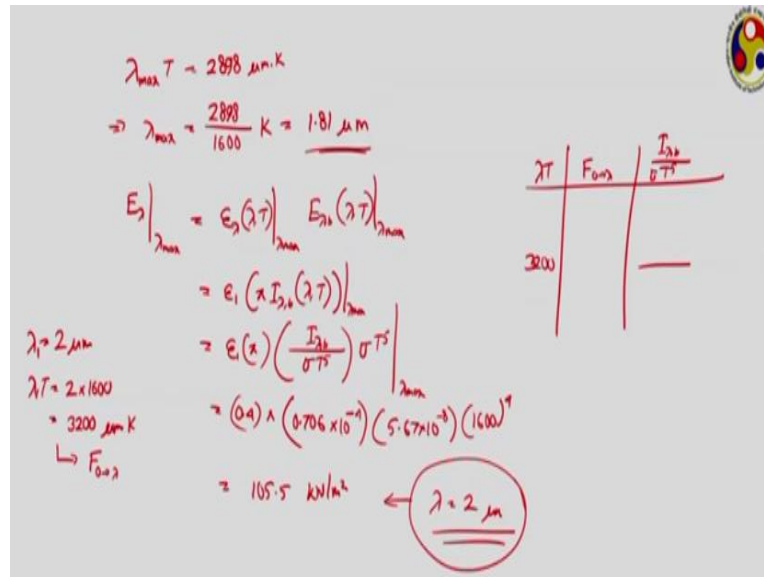 λmax T = 2898 μm.K
⇒ λmax = 2898/1600 K = 1.81 μm
Eλ|λmax = ελ(λT)|λmax Eλb(λT)|λmax
= ε1 (π Iλ,b(λT))|λmax
= ε1(π) (Iλb/σT⁵) σT⁵|λmax
= (0.4) π (0.706×10⁻⁴) (5.67×10⁻⁸) (1600)⁴
= 105.5 kW/m² ← λ = 2 μm
λ1 = 2 μm
λ1T = 2×1600
= 3200 μm K
↳ F0→λ
λT F0→λ Iλb/σT⁵
3200